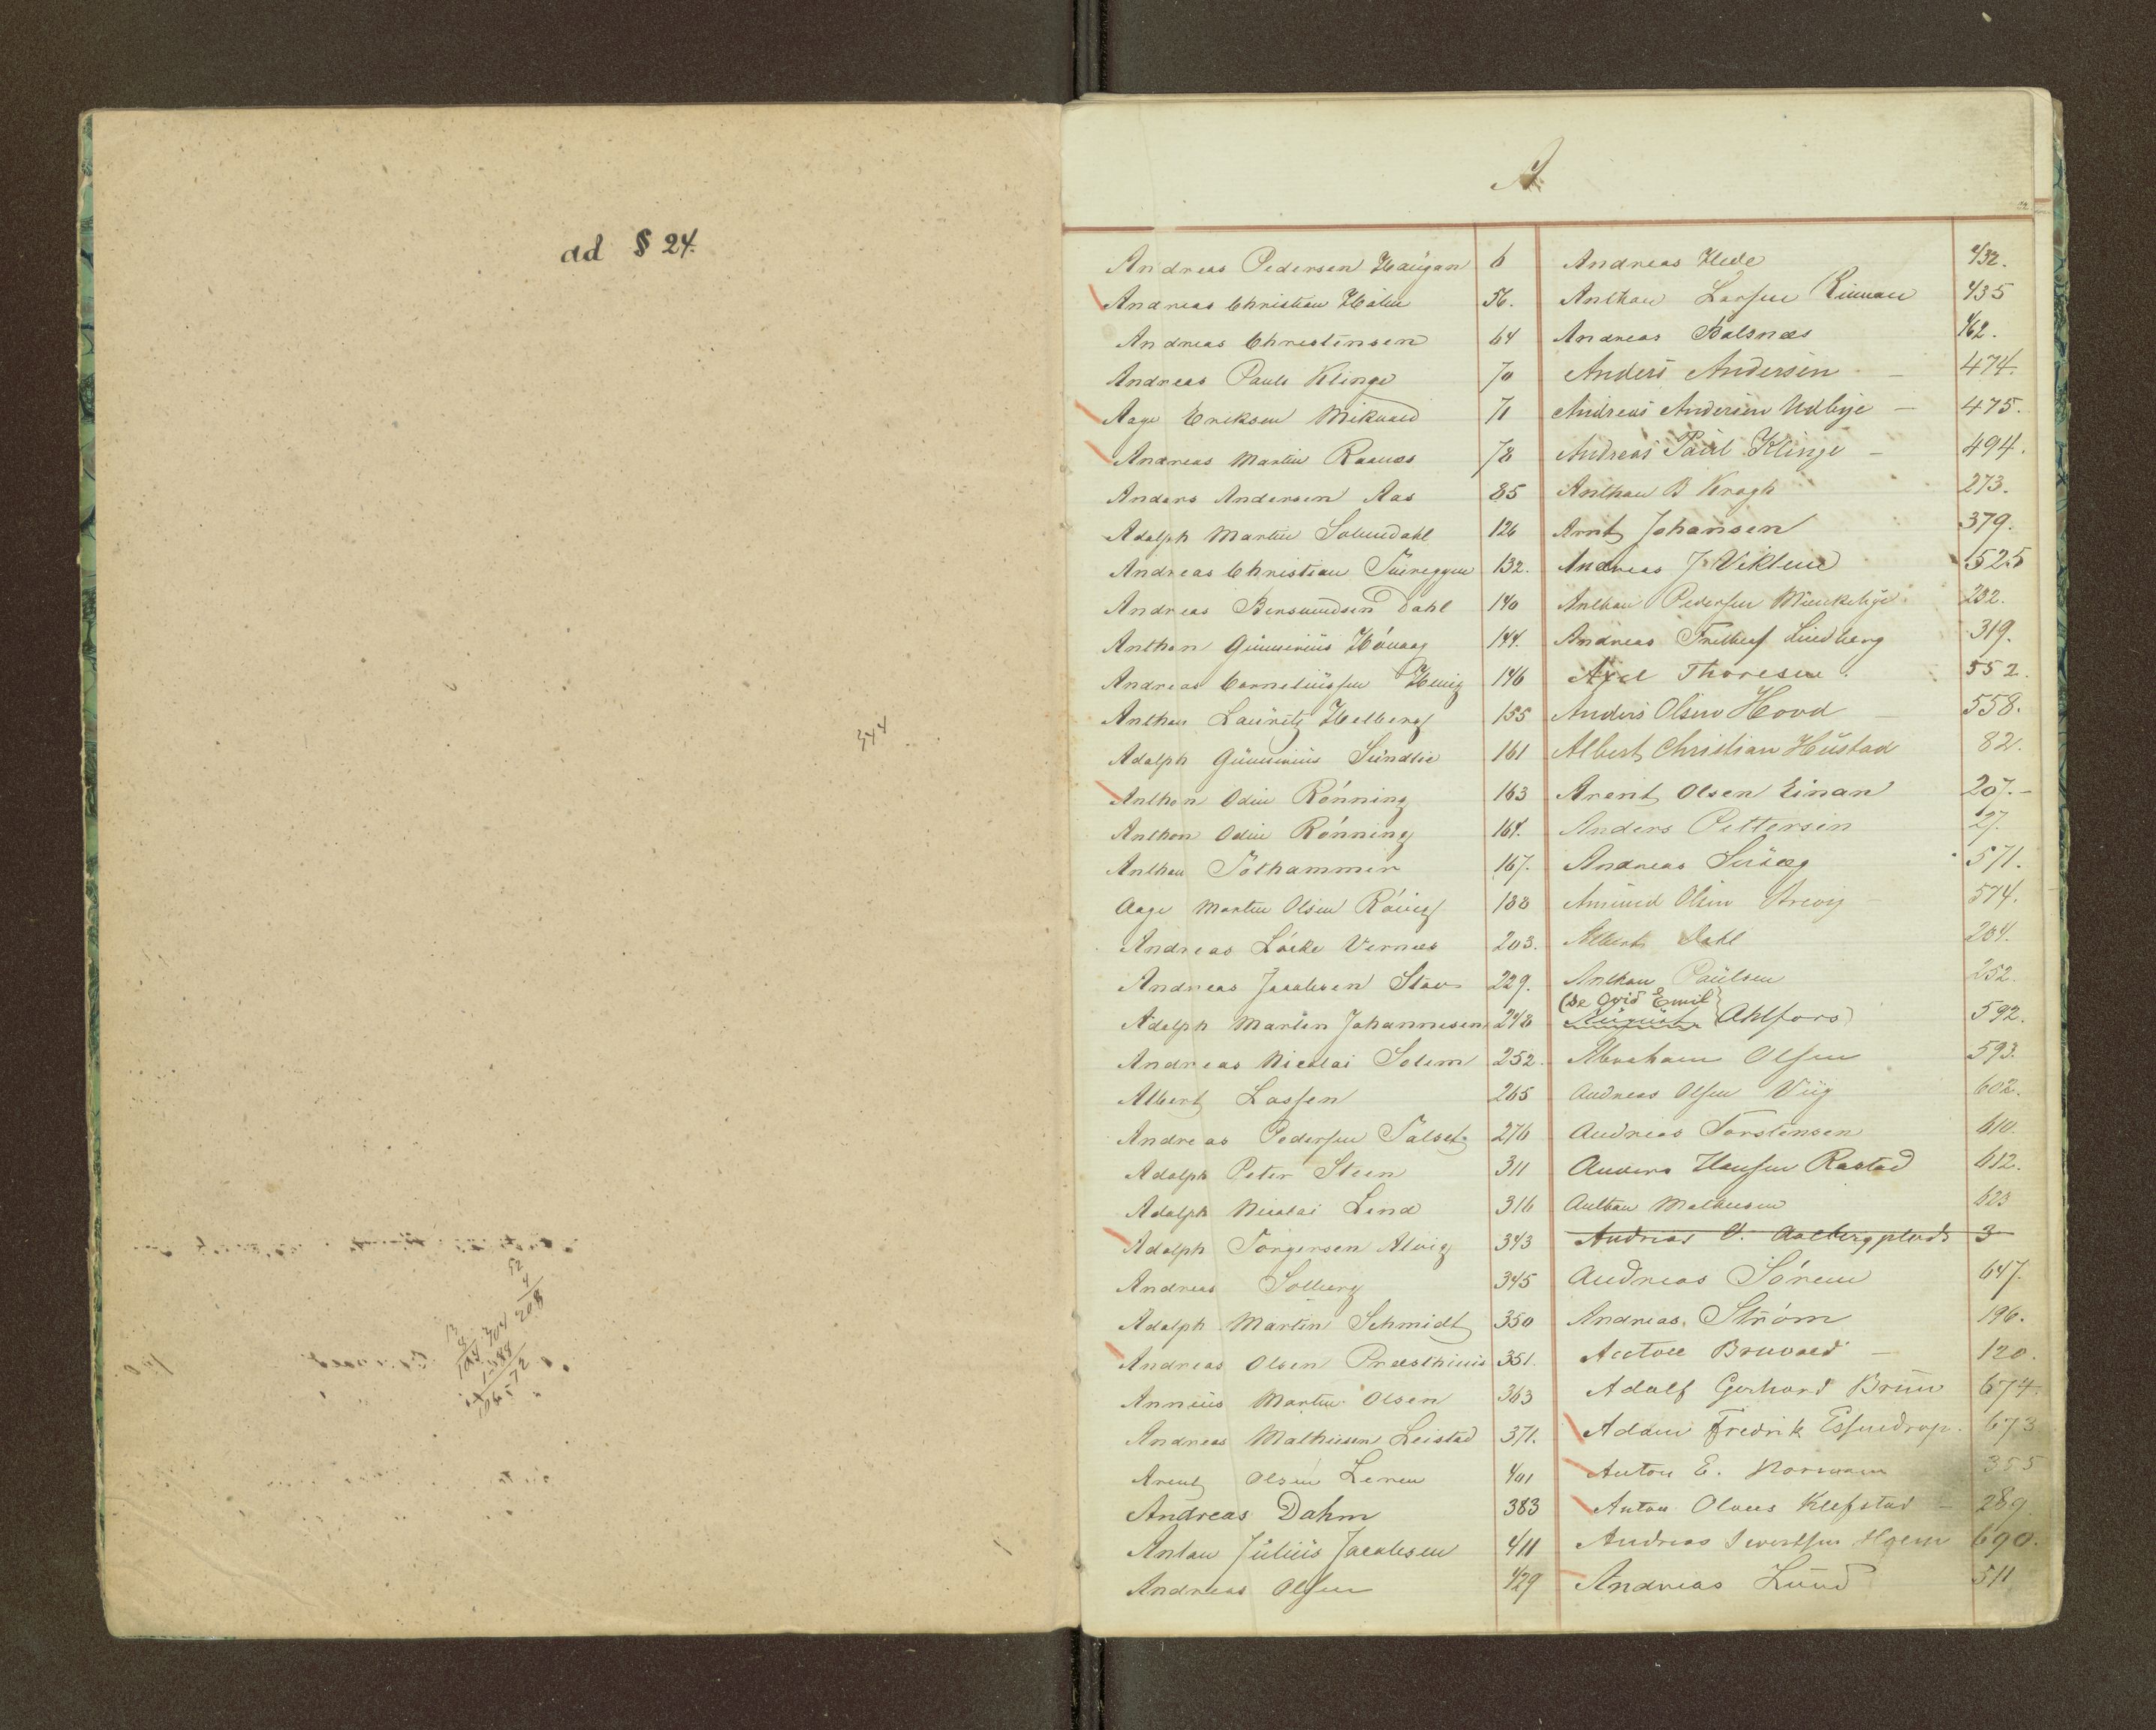 ad § 24.
344
52
4
208
A
Andreas Pedersen Haugan 6
Andreas Christian Holm 56.
Andreas Christensen 64
Andreas Pauls Klinge 70
Aage Eriksen 71
Andreas Martin Raanes 78
Anders Andersen Aas 85
Adolph Martin Solemdahl 126
Andreas Christian 132.
Andreas Bersvendsen Dahl 140
Anthon Gunnerius 144.
Andreas Corneliussen 146
Anthon Lauritz Helberg 155
Adolph Gunnerius Sundlie 161
Anthon Odin Rönning 163
Anthon Odin Rönning 164.
Anthon Solhammer 167.
Aage Martin Olsen 188
Andreas Löcke Vernees 203.
Andreas Jacobsen Stav 229.
Adolph Martin Johannesen 248
Andreas Nicolai Solem 252.
Albert Lassen 265
Andreas Pedersen 276
Adolph Peter Steen 311
Adolph Nicolai Lind 316
Adolph Torgersen Alvig 343
Andreas Solberg 345
Adolph Martin Schmidt 350
Andreas Olsen Præsthuus 351.
Annæus Martin Olsen 363
Andreas Mathisen Leistad 371.
Arent Olsen Leren 401
Andreas Dahm 383
Anton Julius Jacobsen 411
Andreas Olsen 429
Andreas Hede 432.
Anthon Larsen Rinnan 435
Andreas Balsnæs 462.
Anders Andersen - 474.
Andreas Andersen Udbye - 475.
Andreas Paul Klinge - 494.
Anthon B Krogh 273.
Arnt Johansen 379.
Andreas J. Viklund 525
Anthon Pedersen Munkebye 232.
Andreas Frithjof Lindberg 319.
Axel Thoresen 552.
Anders Olsen Hovd 558.
Albert Christian Hustad 82.
Arent Olsen Einan 207.-
Anders Pettersen 27.
Andreas 571.
Amund Olsen - 574.
Albert Dahl 204.
Anthon Paulsen 252.
(se Ovid Emil)
August Ahlfors 592.
Abraham Olsen 593.
Andreas Olsen Viig 602.
Andreas Torstensen 610.
Anders Hansen Rastad 612.
Anthon Mathisen 623
Andreas O. Aalbergplads 3
Andreas Sörem 647.
Andreas Ström 196.
Bruvold - 120.
Adolf Gerhard Bruun 674.
Adam Fredrik Essendrop. 673
Anton E. 355
Anton Olaus Klefstad - 289
Andreas Sivertsen Moen 690.
Andreas Lund 511